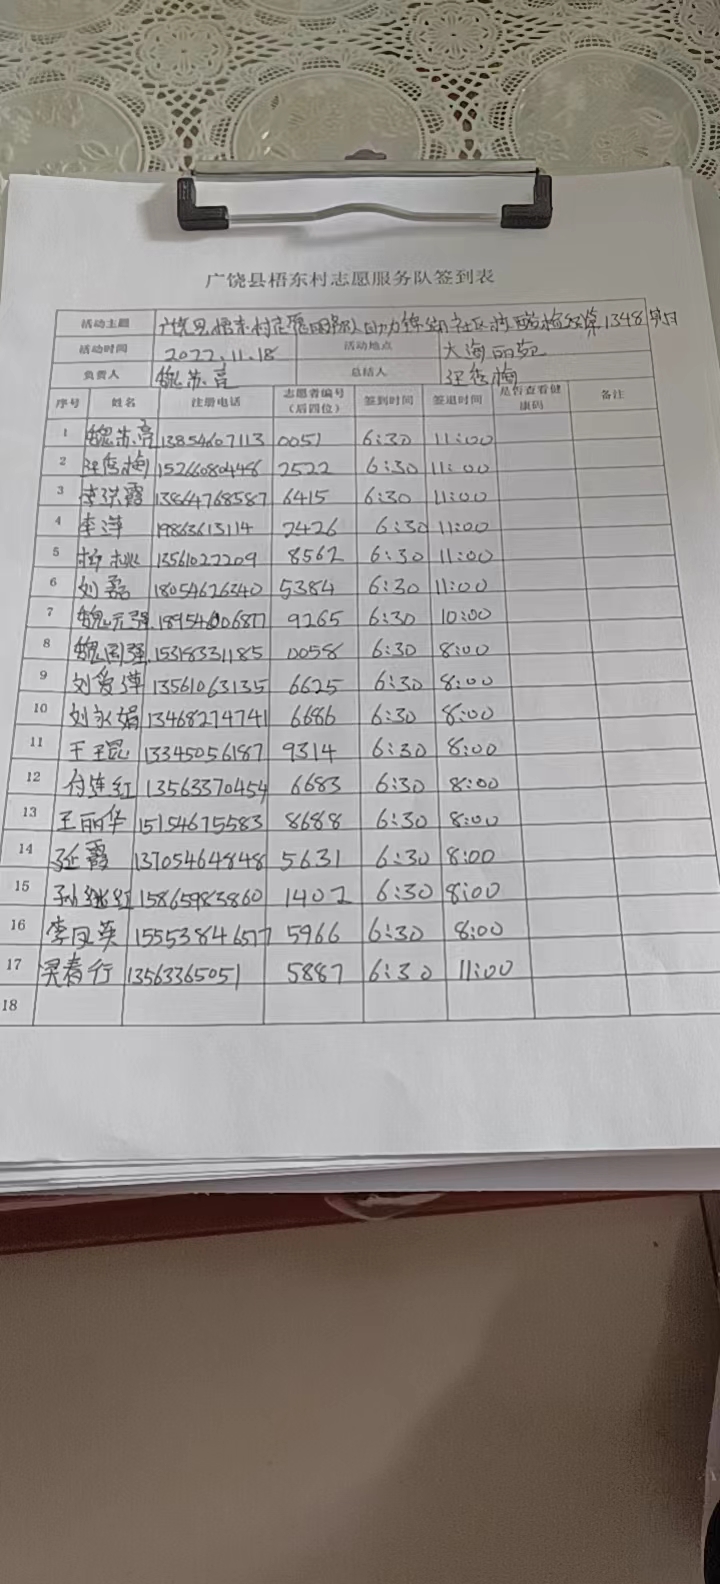 广饶县梧东村志愿服务队签到表
活动主题 广饶县梧东村志愿服务队助力锦湖社区核酸检测第1348場日
活动时间 2022.11.18 活动地点 大海丽苑
负责人 魏苏亮 总结人 汪秀梅
序号 姓名 注册电话 志愿者编号（后四位） 签到时间 签退时间 是否查看健康码 备注
1 魏苏亮 13854607113 0051 6:30 11:00
2 汪秀梅 15266080448 2522 6:30 11:00
3 李洪霞 13864768587 6415 6:30 11:00
4 李萍 19863613114 2426 6:30 11:00
5 杨桃 13561022209 8562 6:30 11:00
6 刘磊 18054626340 5384 6:30 11:00
7 魏元强 18954606877 9265 6:30 10:00
8 魏国强 15318331185 0058 6:30 8:00
9 刘爱萍 13561063135 6625 6:30 8:00
10 刘永娟 13468274741 6686 6:30 8:00
11 王琨 13345056187 9314 6:30 8:00
12 付连红 13563370454 6683 6:30 8:00
13 王丽华 15154675583 8688 6:30 8:00
14 延霞 13705464848 5631 6:30 8:00
15 孙继红 15865983860 1402 6:30 8:00
16 李凤英 15553846577 5966 6:30 8:00
17 吴春行 13563365051 5887 6:30 11:00
18